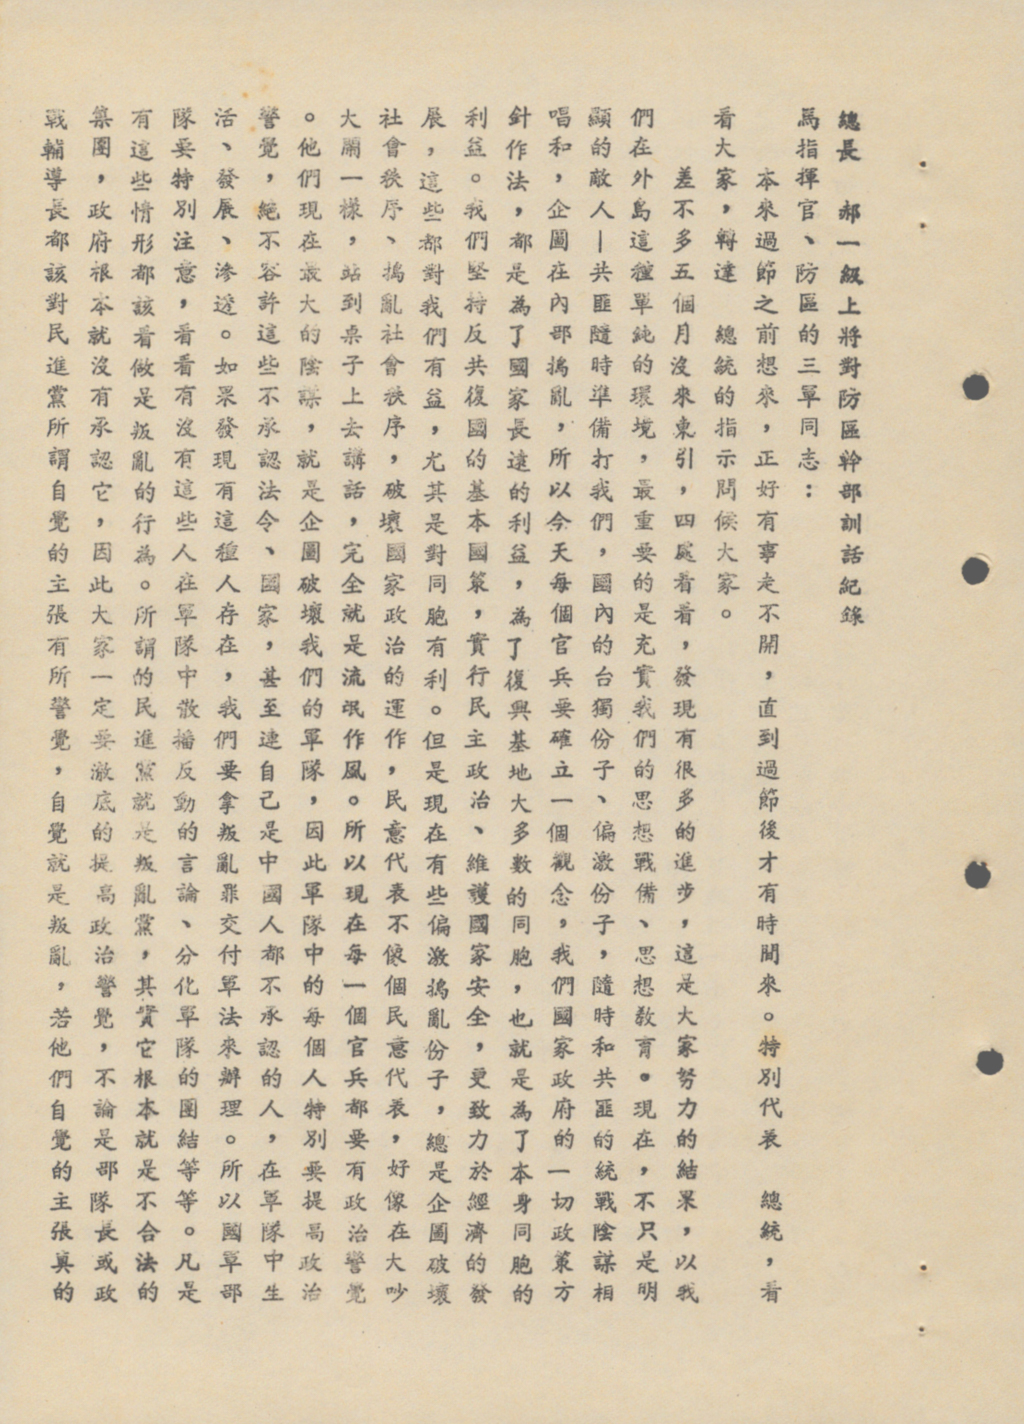 總長　郝一級上將對防區幹部訓話紀錄
馬指揮官、防區的三軍同志：
本來過節之前想來，正好有事走不開，直到過節後才有時間來。特別代表　總統，看
看大家，轉達　總統的指示問候大家。
差不多五個月沒來東引，四處看看，發現有很多的進步，這是大家努力的結果，以我
們在外島這種單純的環境，最重要的是充實我們的思想戰備、思想教育。現在，不只是明
顯的敵人—共匪隨時準備打我們，國內的台獨份子、偏激份子，隨時和共匪的統戰陰謀相
唱和，企圖在內部搗亂，所以今天每個官兵要確立一個觀念，我們國家政府的一切政策方
針作法，都是為了國家長遠的利益，為了復興基地大多數的同胞，也就是為了本身同胞的
利益。我們堅持反共復國的基本國策，實行民主政治、維護國家安全，更致力於經濟的發
展，這些都對我們有益，尤其是對同胞有利。但是現在有些偏激搗亂份子，總是企圖破壞
社會秩序、搗亂社會秩序，破壞國家政治的運作，民意代表不像個民意代表，好像在大吵
大鬧一樣，站到桌子上去講話，完全就是流氓作風。所以現在每一個官兵都要有政治警覺
。他們現在最大的陰謀，就是企圖破壞我們的軍隊，因此軍隊中的每個人特別要提高政治
警覺，絕不容許這些不承認法令、國家，甚至連自己是中國人都不承認的人，在軍隊中生
活、發展、滲透。如果發現有這種人存在，我們要拿叛亂罪交付軍法來辦理。所以國軍部
隊要特別注意，看看有沒有這些人在軍隊中散播反動的言論、分化軍隊的團結等等。凡是
有這些情形都該看做是叛亂的行為。所謂的民進黨就是叛亂黨，其實它根本就是不合法的
集團，政府根本就沒有承認它，因此大家一定要澈底的提高政治警覺，不論是部隊長或政
戰輔導長都該對民進黨所謂自覺的主張有所警覺，自覺就是叛亂，若他們自覺的主張真的